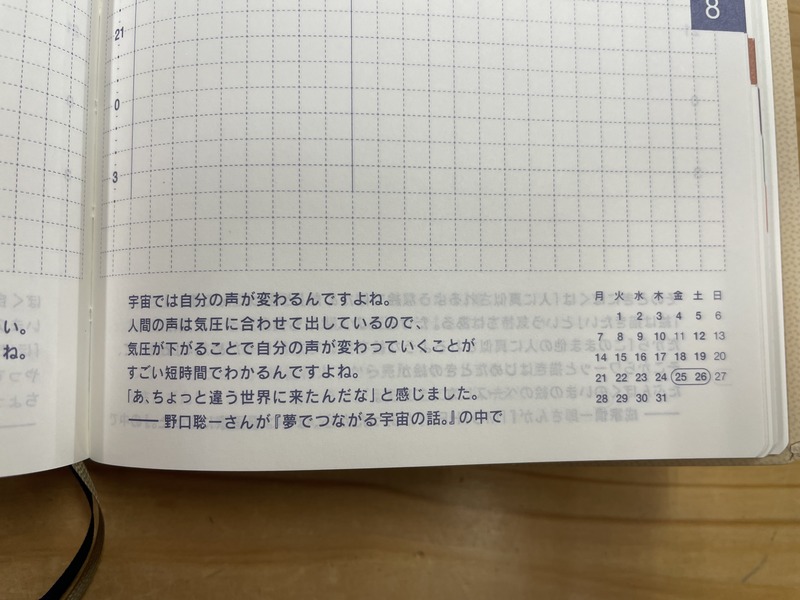 8
21
0
3
い。
ね。
宇宙では自分の声が変わるんですよね。
人間の声は気圧に合わせて出しているので、
気圧が下がることで自分の声が変わっていくことが
すごい短時間でわかるんですよね。
「あ、ちょっと違う世界に来たんだな」と感じました。
—— 野口聡一さんが『夢でつながる宇宙の話。』の中で
月 火 水 木 金 土 日
1 2 3 4 5 6
7 8 9 10 11 12 13
14 15 16 17 18 19 20
21 22 23 24 25 26 27
28 29 30 31